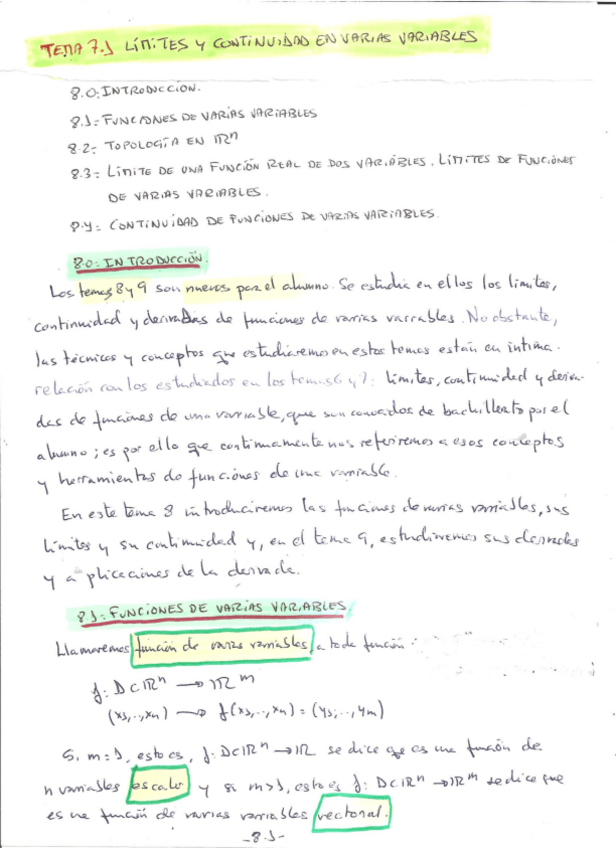 TEMA 7.1 LÍMITES Y CONTINUIDAD EN VARIAS VARIABLES
8.0: INTRODUCCIÓN.
8.1: FUNCIONES DE VARIAS VARIABLES
8.2: TOPOLOGÍA EN ℝⁿ
8.3: LÍMITE DE UNA FUNCIÓN REAL DE DOS VARIABLES. LÍMITES DE FUNCIONES
DE VARIAS VARIABLES.
8.4: CONTINUIDAD DE FUNCIONES DE VARIAS VARIABLES.
8.0: INTRODUCCIÓN.
Los temas 8 y 9 son nuevos para el alumno. Se estudia en ellos los límites,
continuidad y derivadas de funciones de varias variables. No obstante,
las técnicas y conceptos que estudiaremos en estos temas están en íntima
relación con los estudiados en los temas 6 y 7: límites, continuidad y deriva-
das de funciones de una variable, que son conocidos de bachillerato por el
alumno; es por ello que continuamente nos referiremos a esos conceptos
y herramientas de funciones de una variable.
En este tema 8 introduciremos las funciones de varias variables, sus
límites y su continuidad y, en el tema 9, estudiaremos sus derivadas
y aplicaciones de la derivada.
8.1: FUNCIONES DE VARIAS VARIABLES.
Llamaremos función de varias variables, a toda función:
f: D⊂ℝⁿ → ℝᵐ
(x1,..,xn) → f(x1,..,xn) = (y1,..,ym)
Si m=1, esto es, f: D⊂ℝⁿ → ℝ se dice que es una función de
n variables escalar y si m>1, esto es f: D⊂ℝⁿ → ℝᵐ se dice que
es una función de varias variables vectorial.
-8.1-